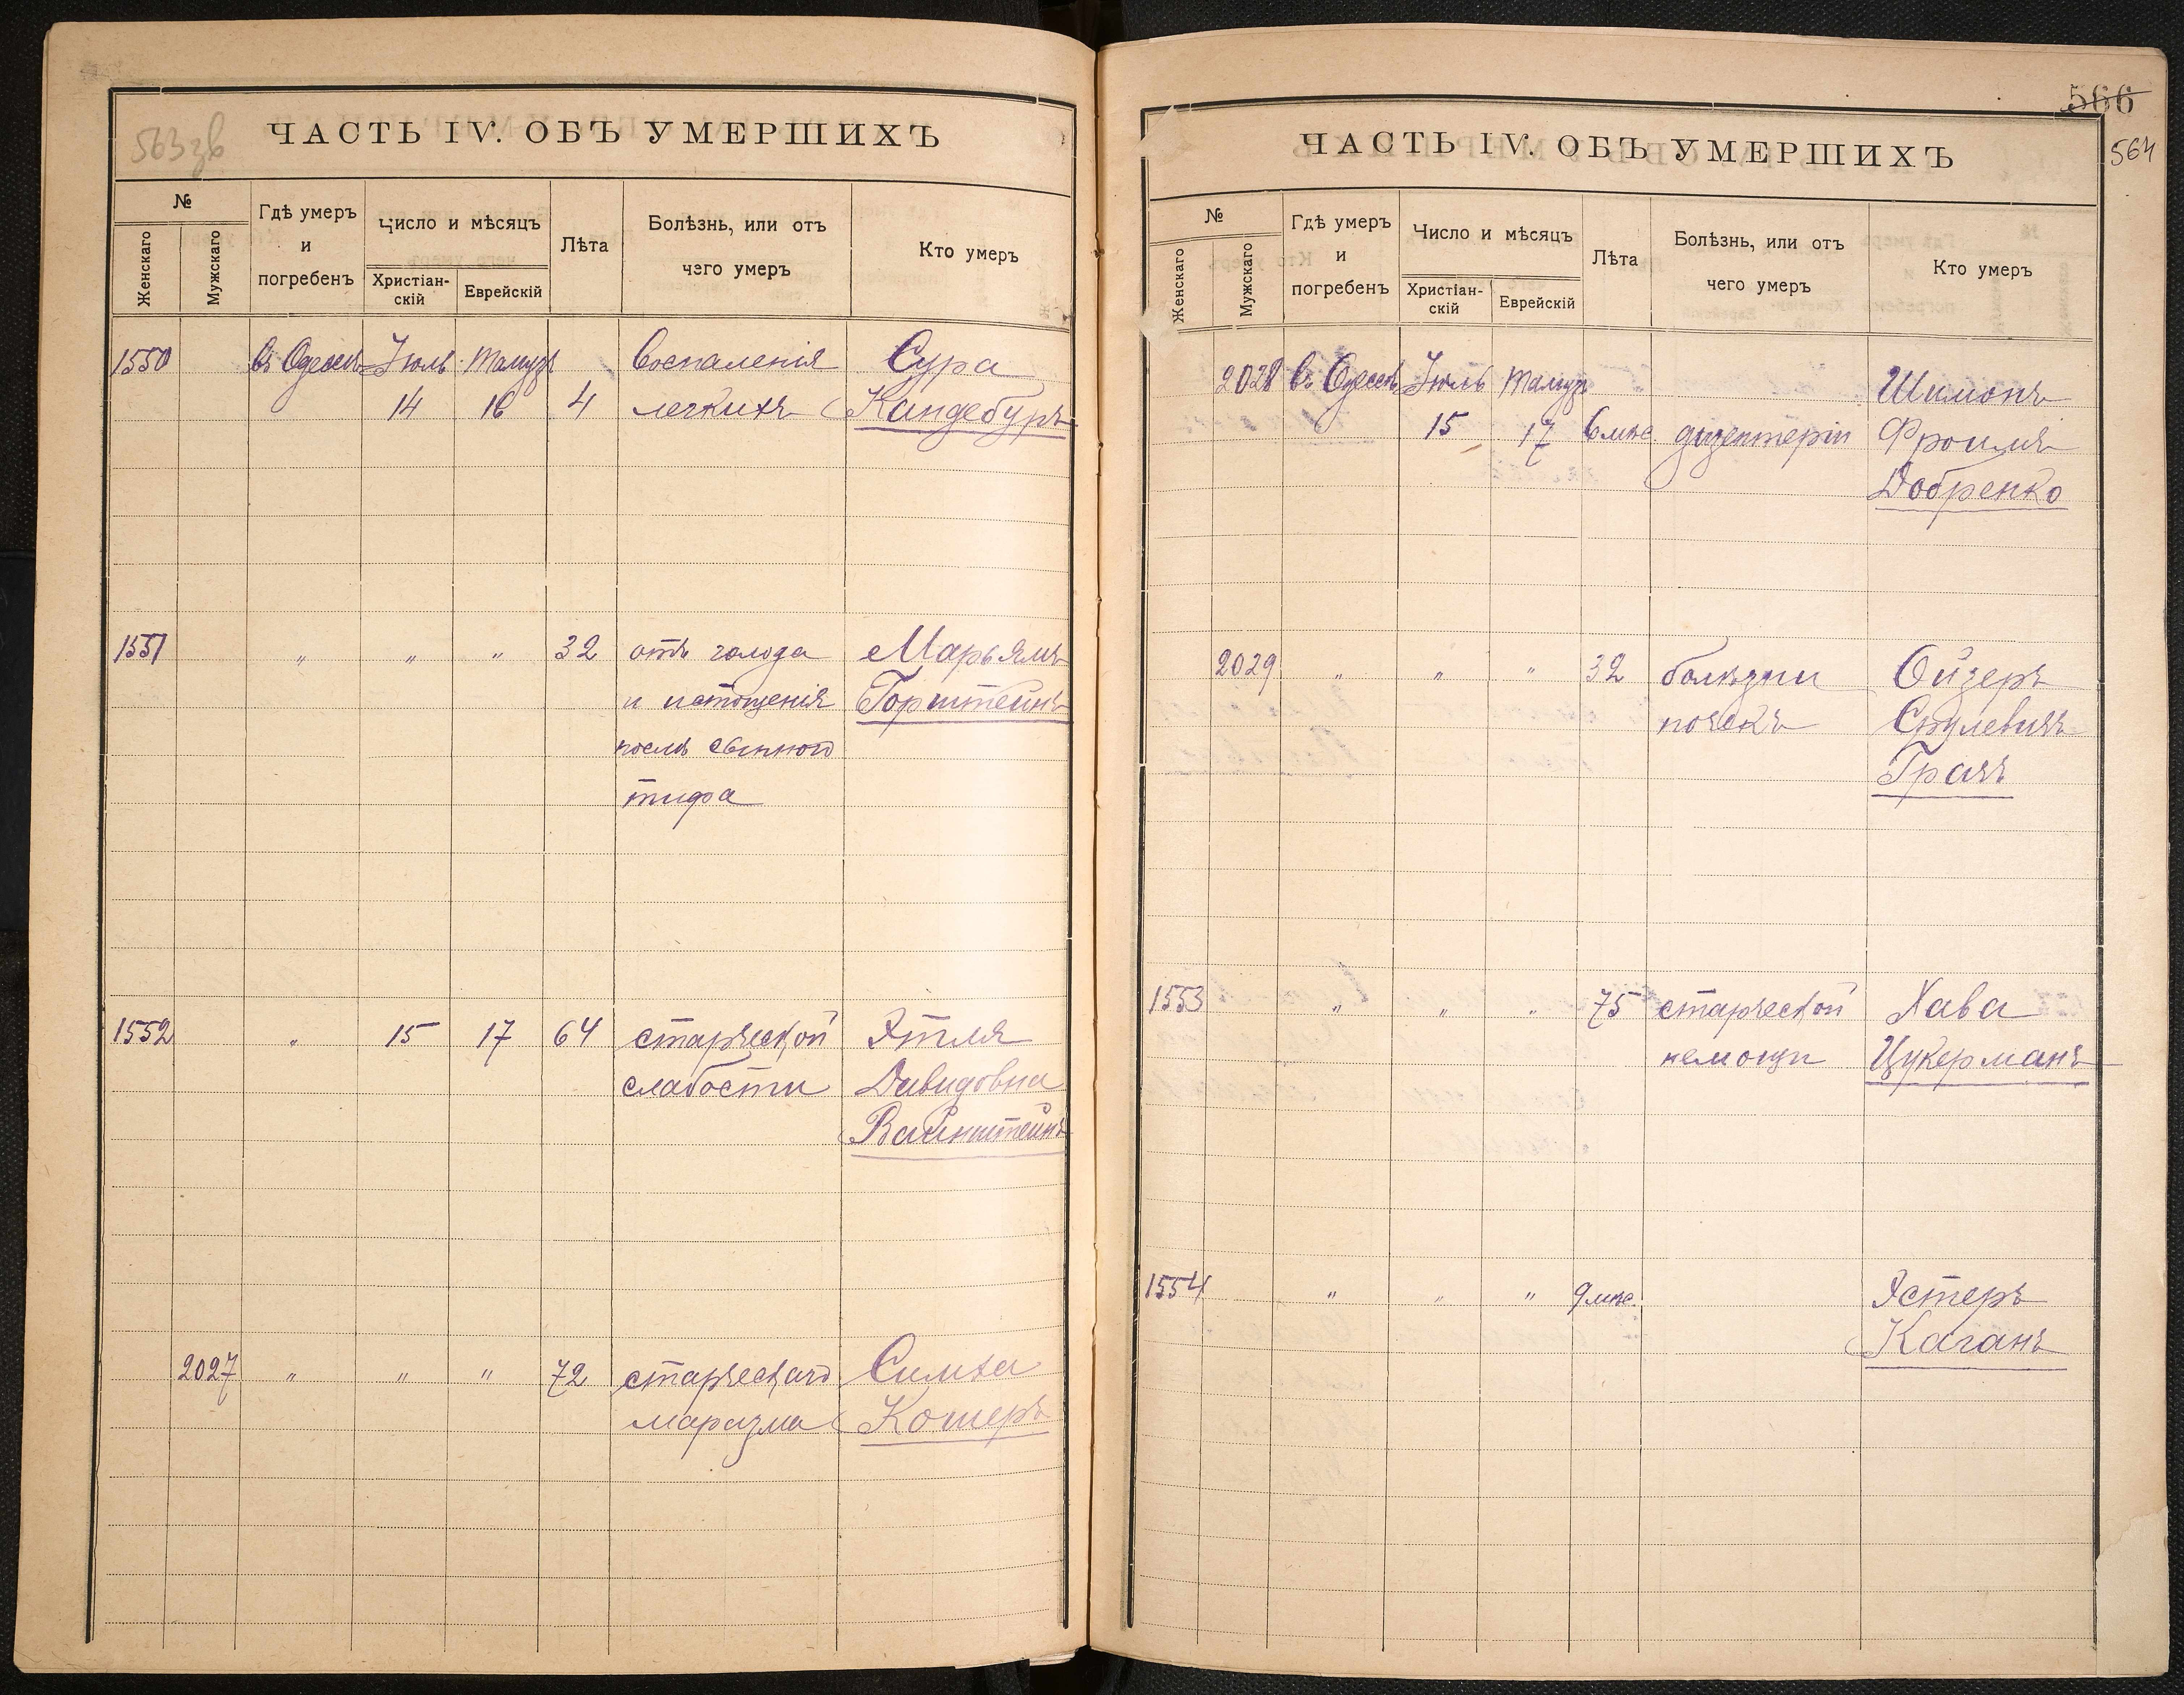 563 зв
ЧАСТЬ IV. ОБЪ УМЕРШИХЪ
№
Женскаго
Мужскаго
Гдѣ умеръ
и
погребенъ
Число и мѣсяцъ
Христіан-
скій
Еврейскій
Лѣта
Болѣзнь, или отъ
чего умеръ
Кто умеръ
1550 въ Одессѣ Іюль Тамузъ воспаленія Сура
14 16 4 легкихъ Кандебуръ
1551 " " " 32 отъ голода Марьямъ
и истощенія Горштейнъ
послѣ сыпного
тифа
1552 " 15 17 64 старческой Этля
слабости Давидовна
Вайнштейнъ
2027 " " " 72 старческаго Симха
маразма Кошеръ
566
564
ЧАСТЬ IV. ОБЪ УМЕРШИХЪ
№
Женскаго
Мужскаго
Гдѣ умеръ
и
погребенъ
Число и мѣсяцъ
Христіан-
скій
Еврейскій
Лѣта
Болѣзнь, или отъ
чего умеръ
Кто умеръ
2028 въ Одессѣ Іюль Тамузъ Шимонъ
15 17 6 мѣс. дизентеріи Фроимъ
Добренко
2029 " " " 32 болѣзни Ойзеръ
почекъ Срулевичъ
Грачъ
1553 " " " 75 старческой Хава
немощи Цукерманъ
1554 " " " 9 мѣс. Эстеръ
Каганъ